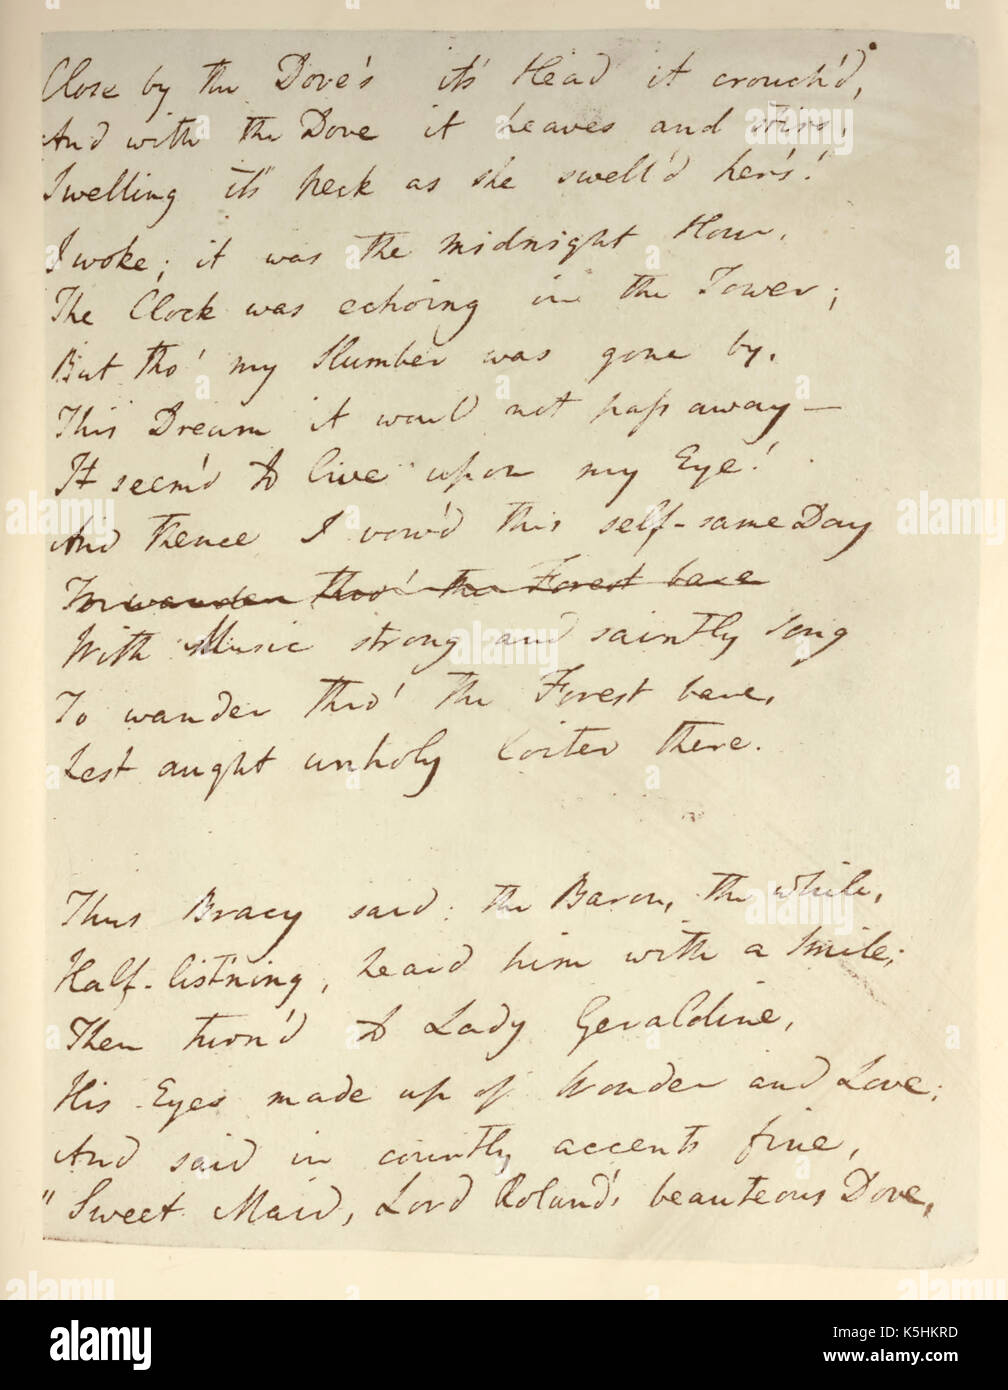 Close by the Dove's its' Head it crouch'd,
And with the Dove it heaves and stirs,
Swelling its' neck as she swell'd her's!
I woke; it was the midnight Hour,
The Clock was echoing in the Tower;
But tho' my Slumber was gone by,
This Dream it would not pass away—
It seem'd to live upon my Eye!
And thence I vow'd this self-same Day
To wander thro' the Forest bare
With Music strong and saintly song
To wander thro' the Forest bare,
Lest aught unholy loiter there.
Thus Bracy said: the Baron, the while,
Half-list'ning, heard him with a Smile;
Then turn'd to Lady Geraldine,
His Eyes made up of Wonder and Love;
And said in courtly accents fine,
"Sweet Maid, Lord Roland's beauteous Dove,
alamy
Image ID: K5HKRD
www.alamy.com